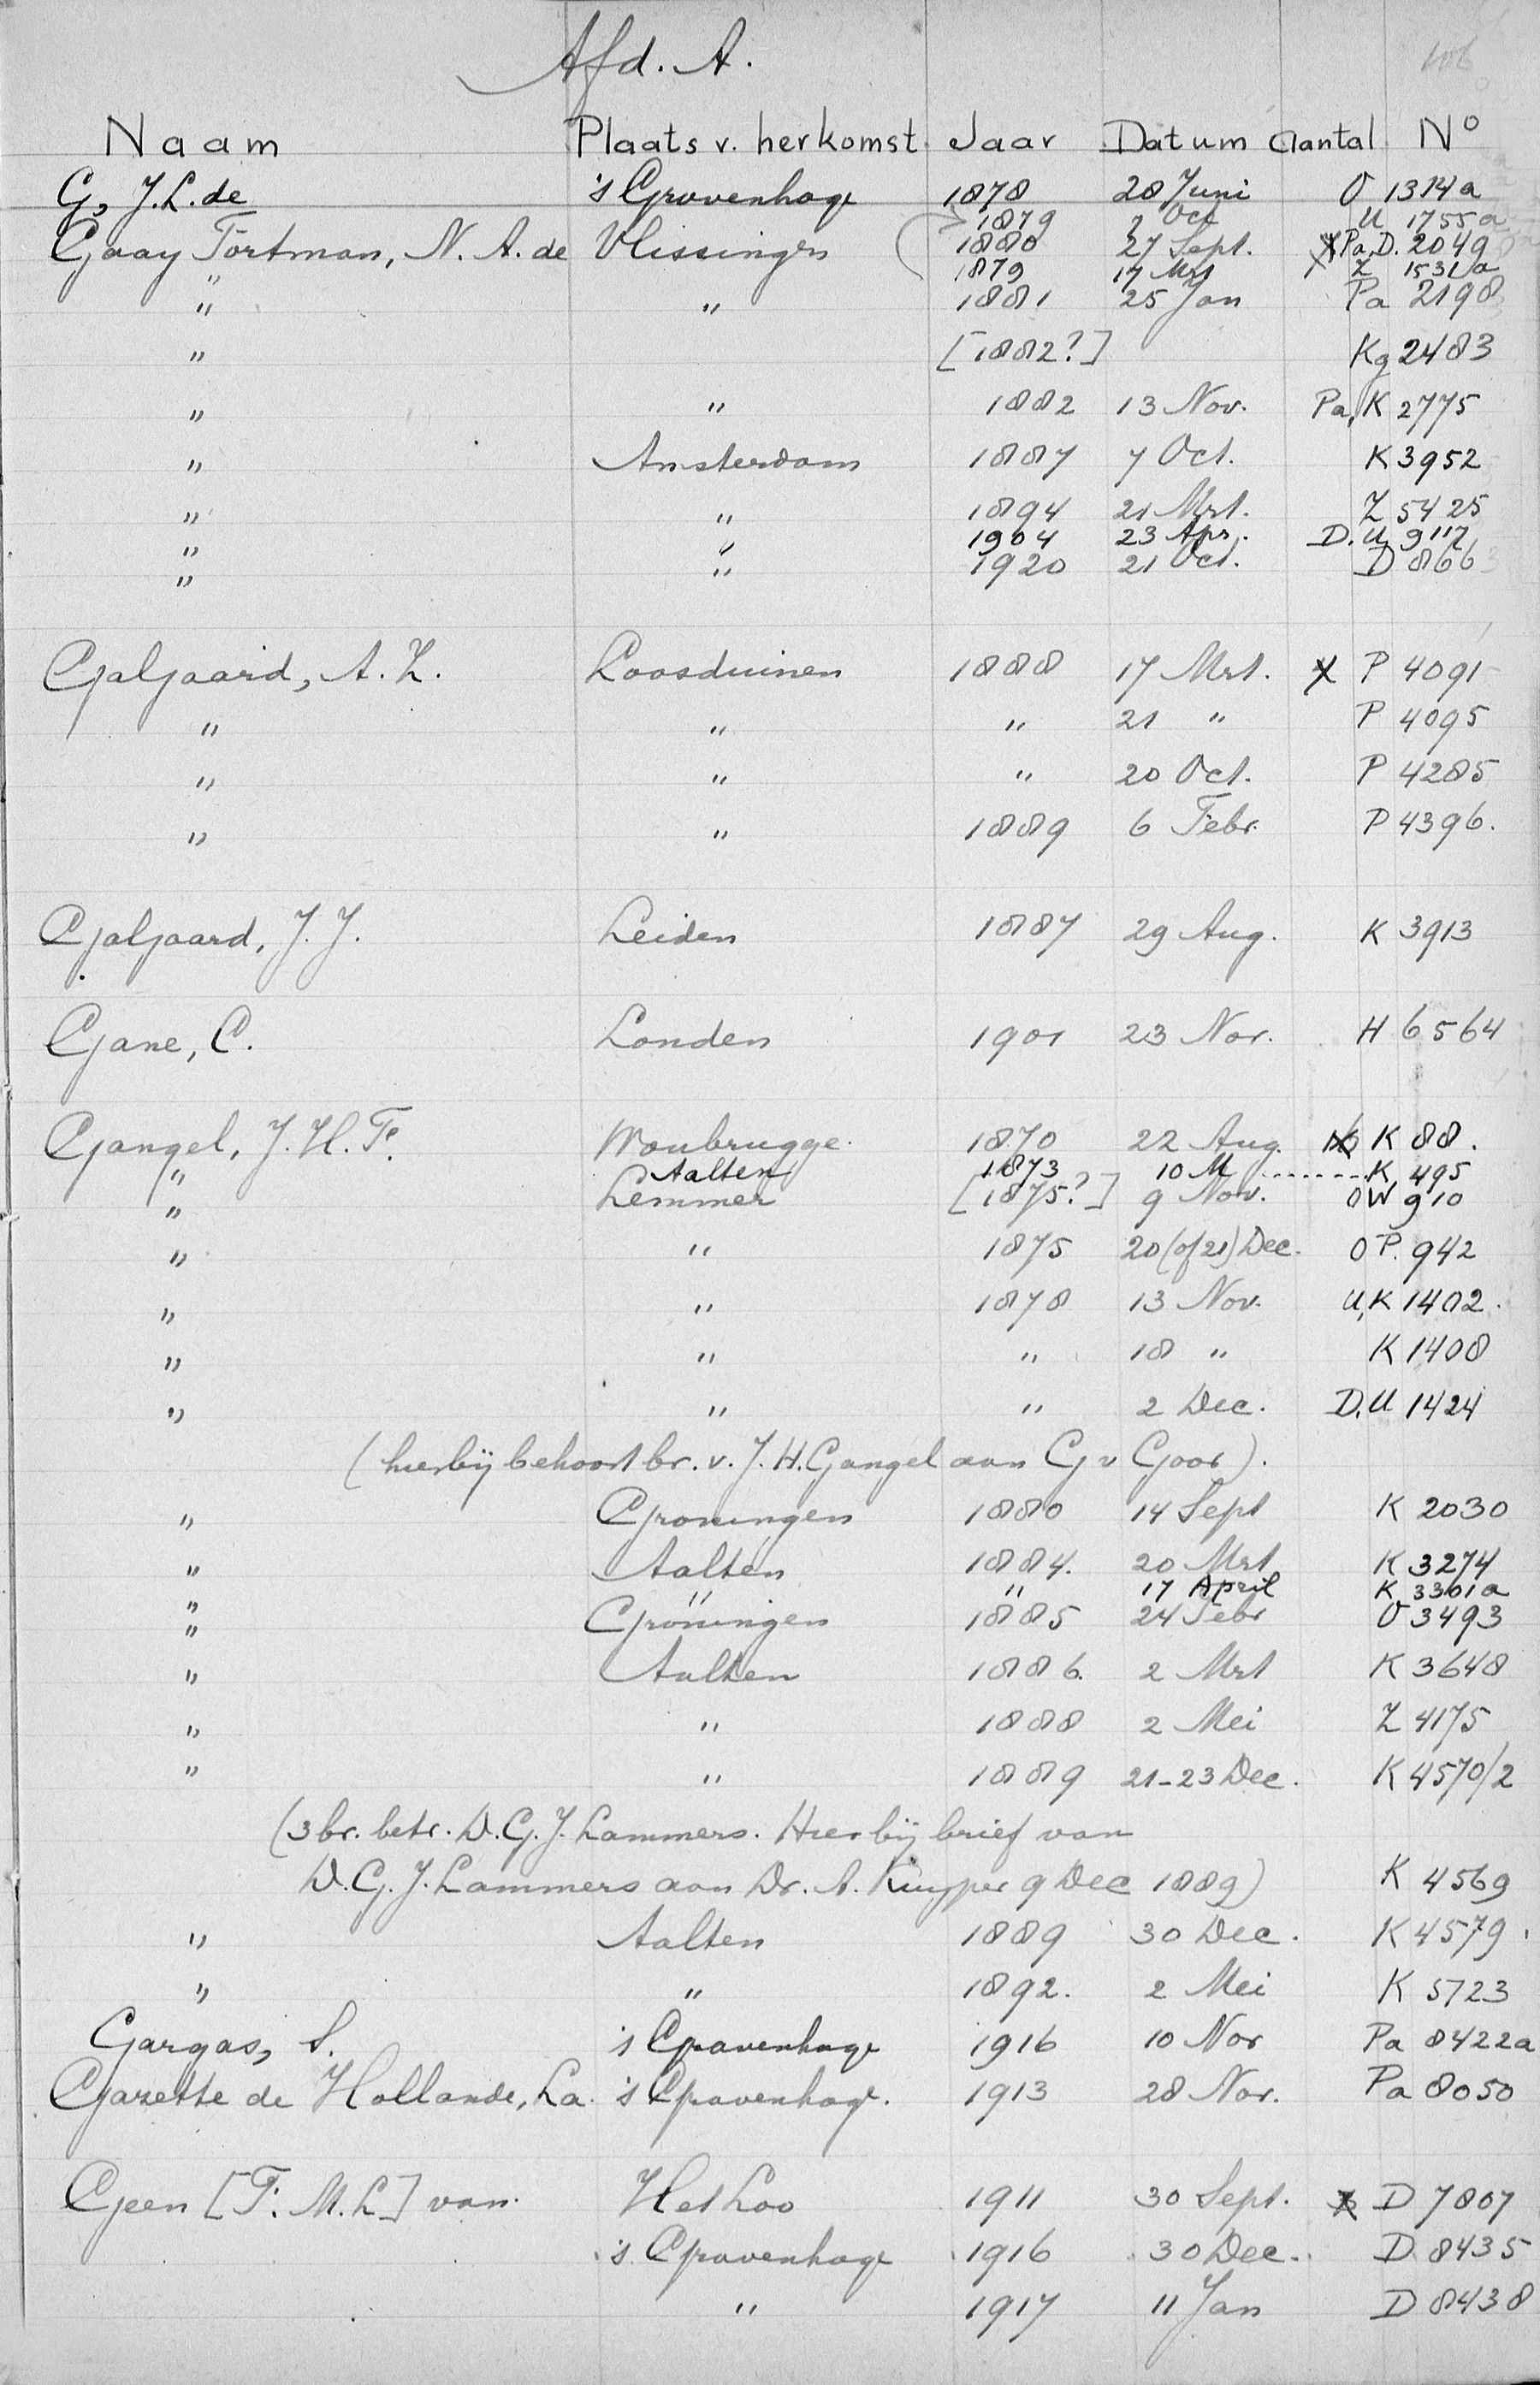 Afd. A.
106
Naam Plaats v. herkomst Jaar Datum Aantal No
G, J. L. de 's Gravenhage 1878 28 Juni O 1314a
1879 7 Oct U 1755a
Gaay Fortman, N. A. de Vlissingen 1880 27 Sept. Pa. D. 2049
" 1879 17 Mrt Z 1531a
" " 1881 25 Jan Pa 2198
" [1882?] Kg 2483
" " 1882 13 Nov. Pa, K 2775
" Amsterdam 1887 7 Oct. K 3952
" " 1894 21 Mrt. Z 5425
" " 1904 23 Apr. D. U 9117
" " 1920 21 Oct. D 8663
Galjaard, A. Z. Loosduinen 1888 17 Mrt. P 4091
" " " 21 " P 4095
" " " 20 Oct. P 4285
" " 1889 6 Febr. P 4396.
Galjaard, J. J. Leiden 1887 29 Aug. K 3913
Gane, C. Londen 1901 23 Nov. H 6564
Gangel, J. H. F. Woubrugge 1870 22 Aug. K 88.
" Aalten 1873 10 M ........ K 495
" Lemmer [1875?] 9 Nov. OW 910
" " 1875 20 (of 21) Dec. O P. 942
" " 1878 13 Nov. U, K 1402.
" " " 18 " K 1408
" " " 2 Dec. D. U 1424
(hierbij behoort br. v. J. H. Gangel aan G v Goor).
" Groningen 1880 14 Sept K 2030
" Aalten 1884. 20 Mrt K 3274
" " " 17 April K 3301a
" Groningen 1885 24 Febr O 3493
" Aalten 1886. 2 Mrt K 3648
" " 1888 2 Mei Z 4175
" " 1889 21-23 Dec. K 4570/2
(3 br. betr. D. G. J. Lammers. Hierbij brief van
D. G. J. Lammers aan Dr. A. Kuyper 9 Dec 1889) K 4569
" Aalten 1889 30 Dec. K 4579.
" " 1892. 2 Mei K 5723
Gargas, S. 's Gravenhage 1916 10 Nov Pa 8422a
Gazette de Hollande, La. 's Gravenhage. 1913 28 Nov. Pa 8050
Geen [F. M. L] van Het Loo 1911 30 Sept. D 7807
's Gravenhage 1916 30 Dec. D 8435
" 1917 11 Jan D 8438